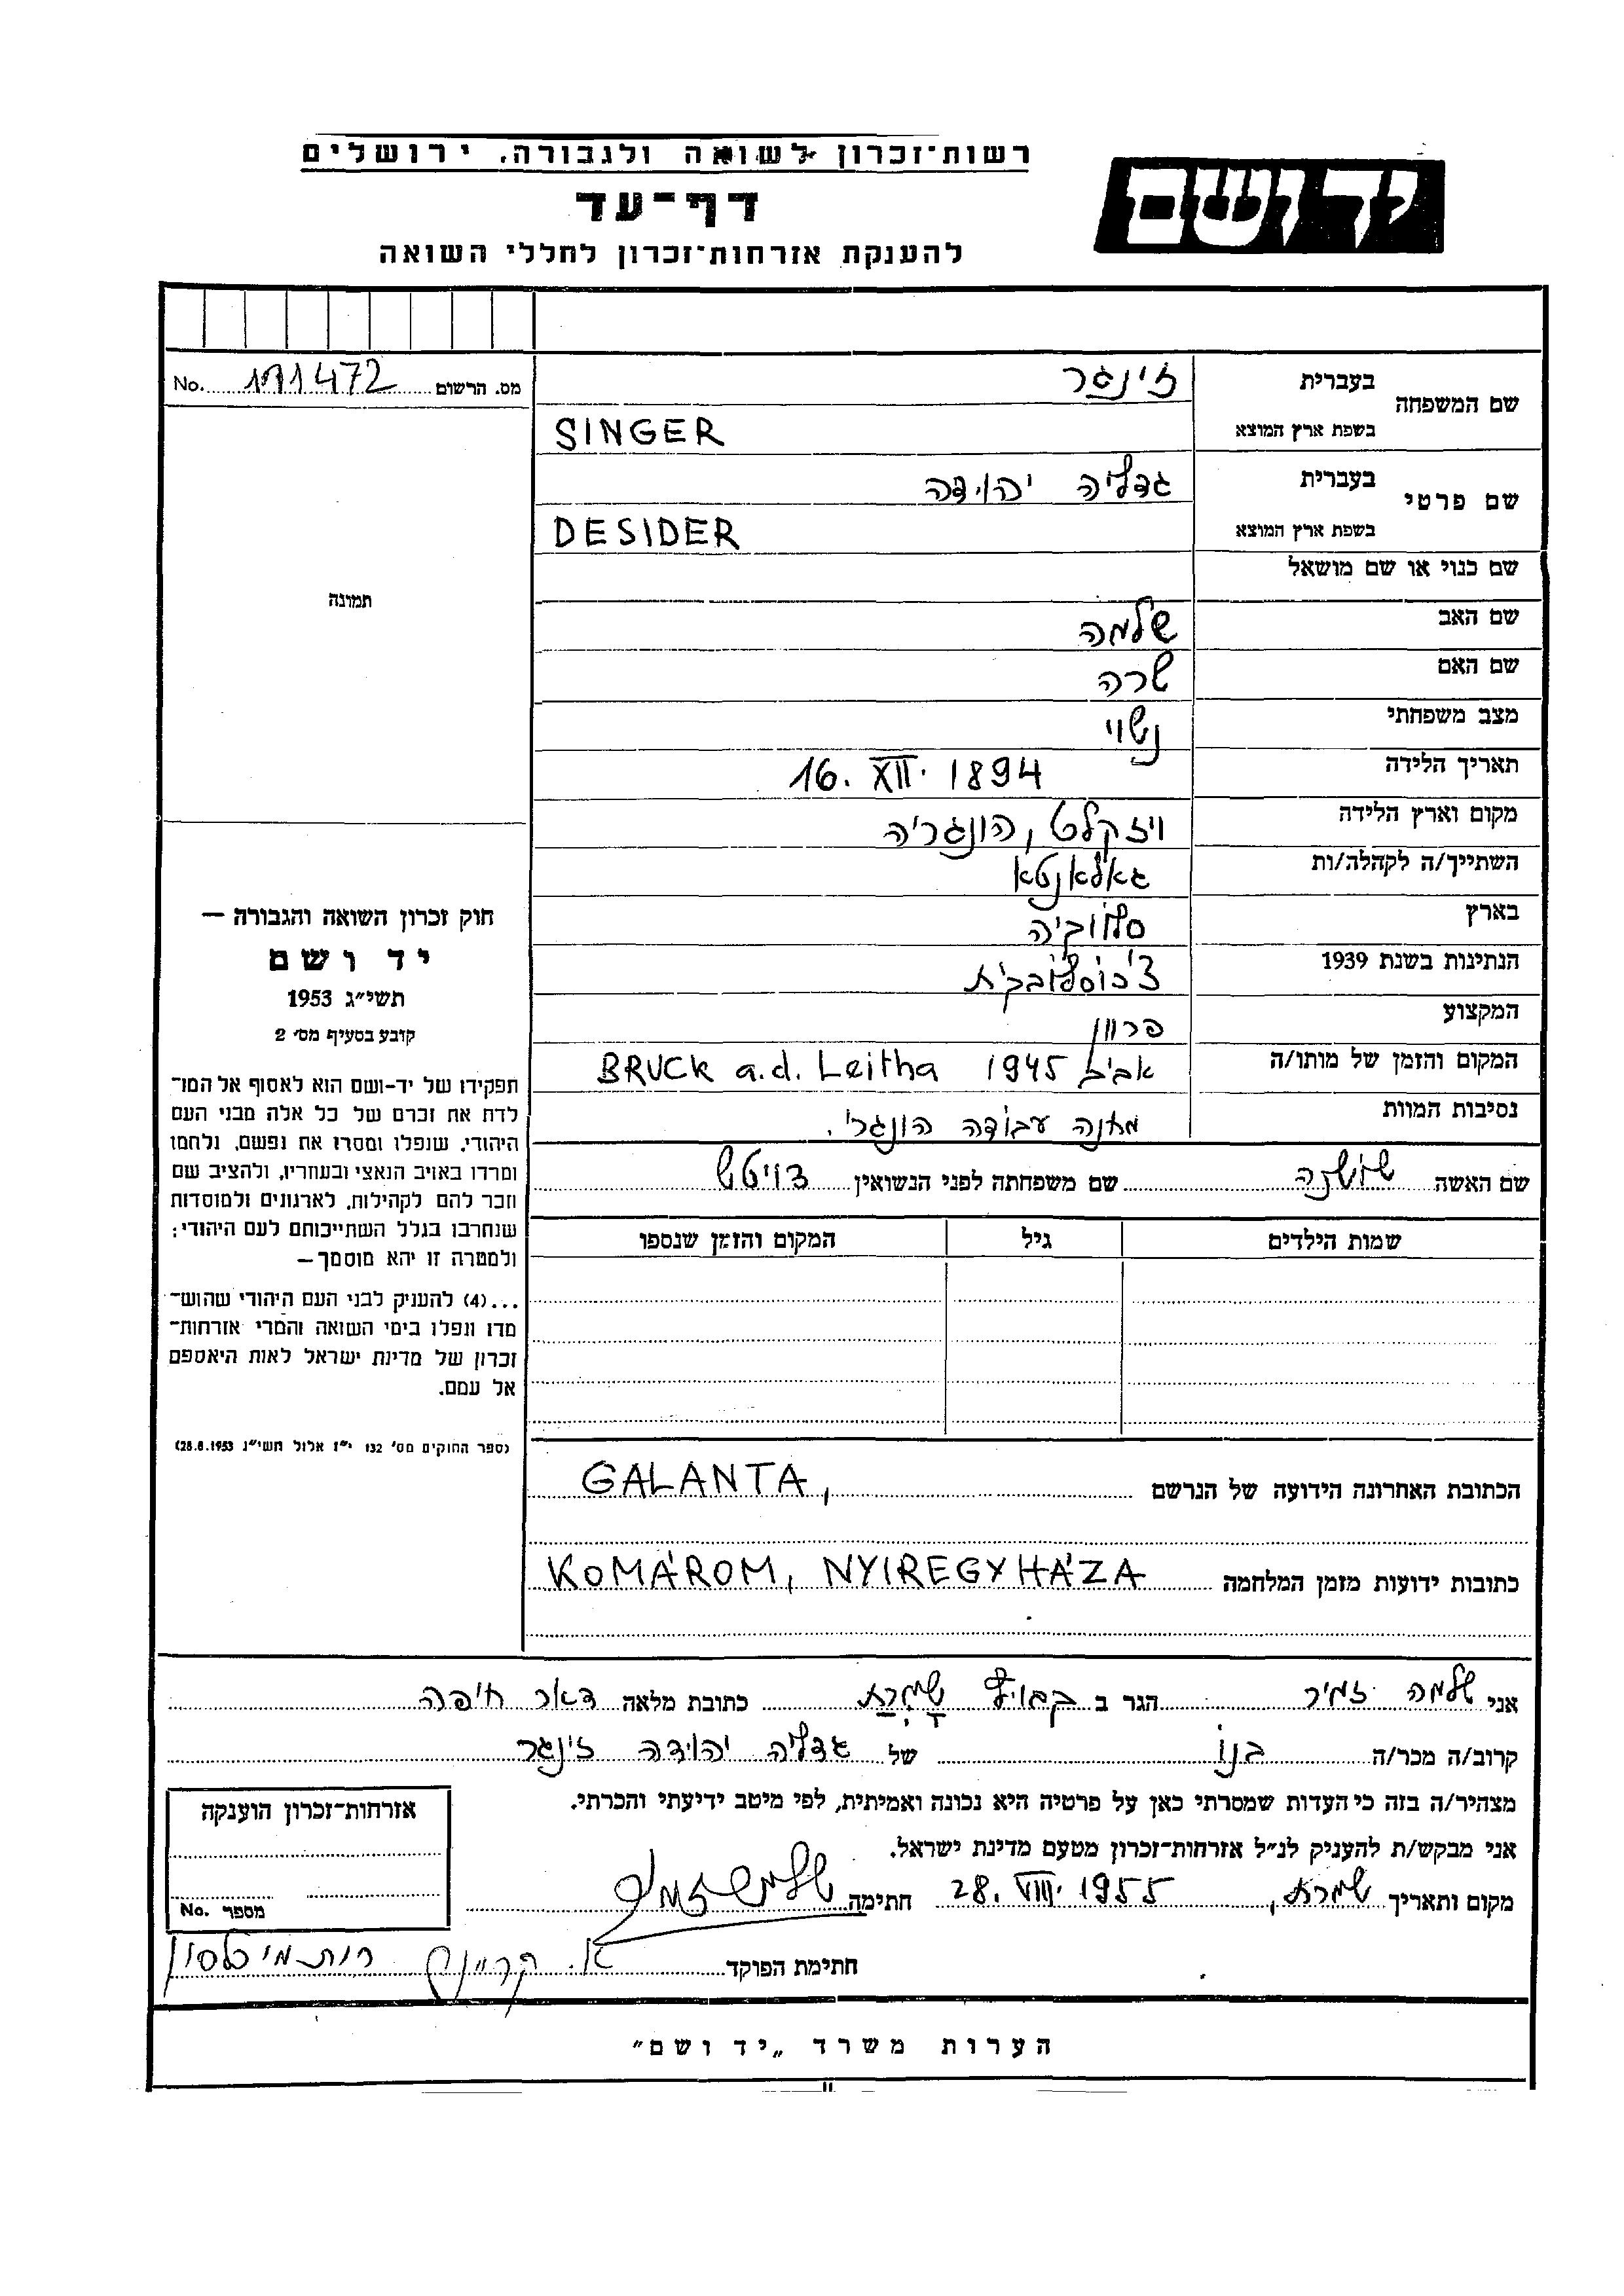 רשות־זכרון לשואה ולגבורה, ירושלים
יד ושם
דף־עד
להענקת אזרחות־זכרון לחללי השואה
מס. הרשום 111472 No.
שם המשפחה בעברית זינגר
בשפת ארץ המוצא SINGER
שם פרטי בעברית גדליה יהודה
בשפת ארץ המוצא DESIDER
שם כנוי או שם מושאל
שם האב שלמה
שם האם שרה
מצב משפחתי נשוי
תאריך הלידה 16. XII. 1894
מקום וארץ הלידה ויזקלט, הונגריה
השתייך/ה לקהלה/ות גאלאנטא
בארץ סלובקיה
הנתינות בשנת 1939 צ'כוסלובקית
המקצוע פרוון
המקום והזמן של מותו/ה אביב 1945 BRUCK a.d. Leitha
נסיבות המוות מחנה עבודה הונגרי.
שם האשה שושנה שם משפחתה לפני הנשואין דויטש
שמות הילדים גיל המקום והזמן שנספו
תמונה
חוק זכרון השואה והגבורה —
יד ושם
תשי״ג 1953
קובע בסעיף מס׳ 2
תפקידו של יד-ושם הוא לאסוף אל המו־
לדת את זכרם של כל אלה מבני העם
היהודי, שנפלו ומסרו את נפשם, נלחמו
ומרדו באויב הנאצי ובעוזריו, ולהציב שם
וזכר להם לקהילות, לארגונים ולמוסדות
שנחרבו בגלל השתייכותם לעם היהודי;
ולמטרה זו יהא מוסמך—
...(4) להעניק לבני העם היהודי שהוש־
מדו ונפלו בימי השואה והמרי אזרחות־
זכרון של מדינת ישראל לאות היאספם
אל עמם.
(ספר החוקים מס׳ 132 י״ז אלול תשי״ג 28.8.1953)
הכתובת האחרונה הידועה של הנרשם GALANTA,
כתובות ידועות מזמן המלחמה KOMÁROM, NYIREGYHÁZA
אני שלמה זמיר הגר ב קבוץ שמרת כתובת מלאה ד.נ. דאר חיפה
קרוב/ה מכר/ה בנו של גדליה יהודה זינגר
מצהיר/ה בזה כי העדות שמסרתי כאן על פרטיה היא נכונה ואמיתית, לפי מיטב ידיעתי והכרתי.
אני מבקש/ת להעניק לנ״ל אזרחות־זכרון מטעם מדינת ישראל.
מקום ותאריך שמרת, 28. VIII. 1955 חתימה שלמה זמיר
חתימת הפוקד
אזרחות־זכרון הוענקה
מספר No.
הערות משרד „יד ושם״